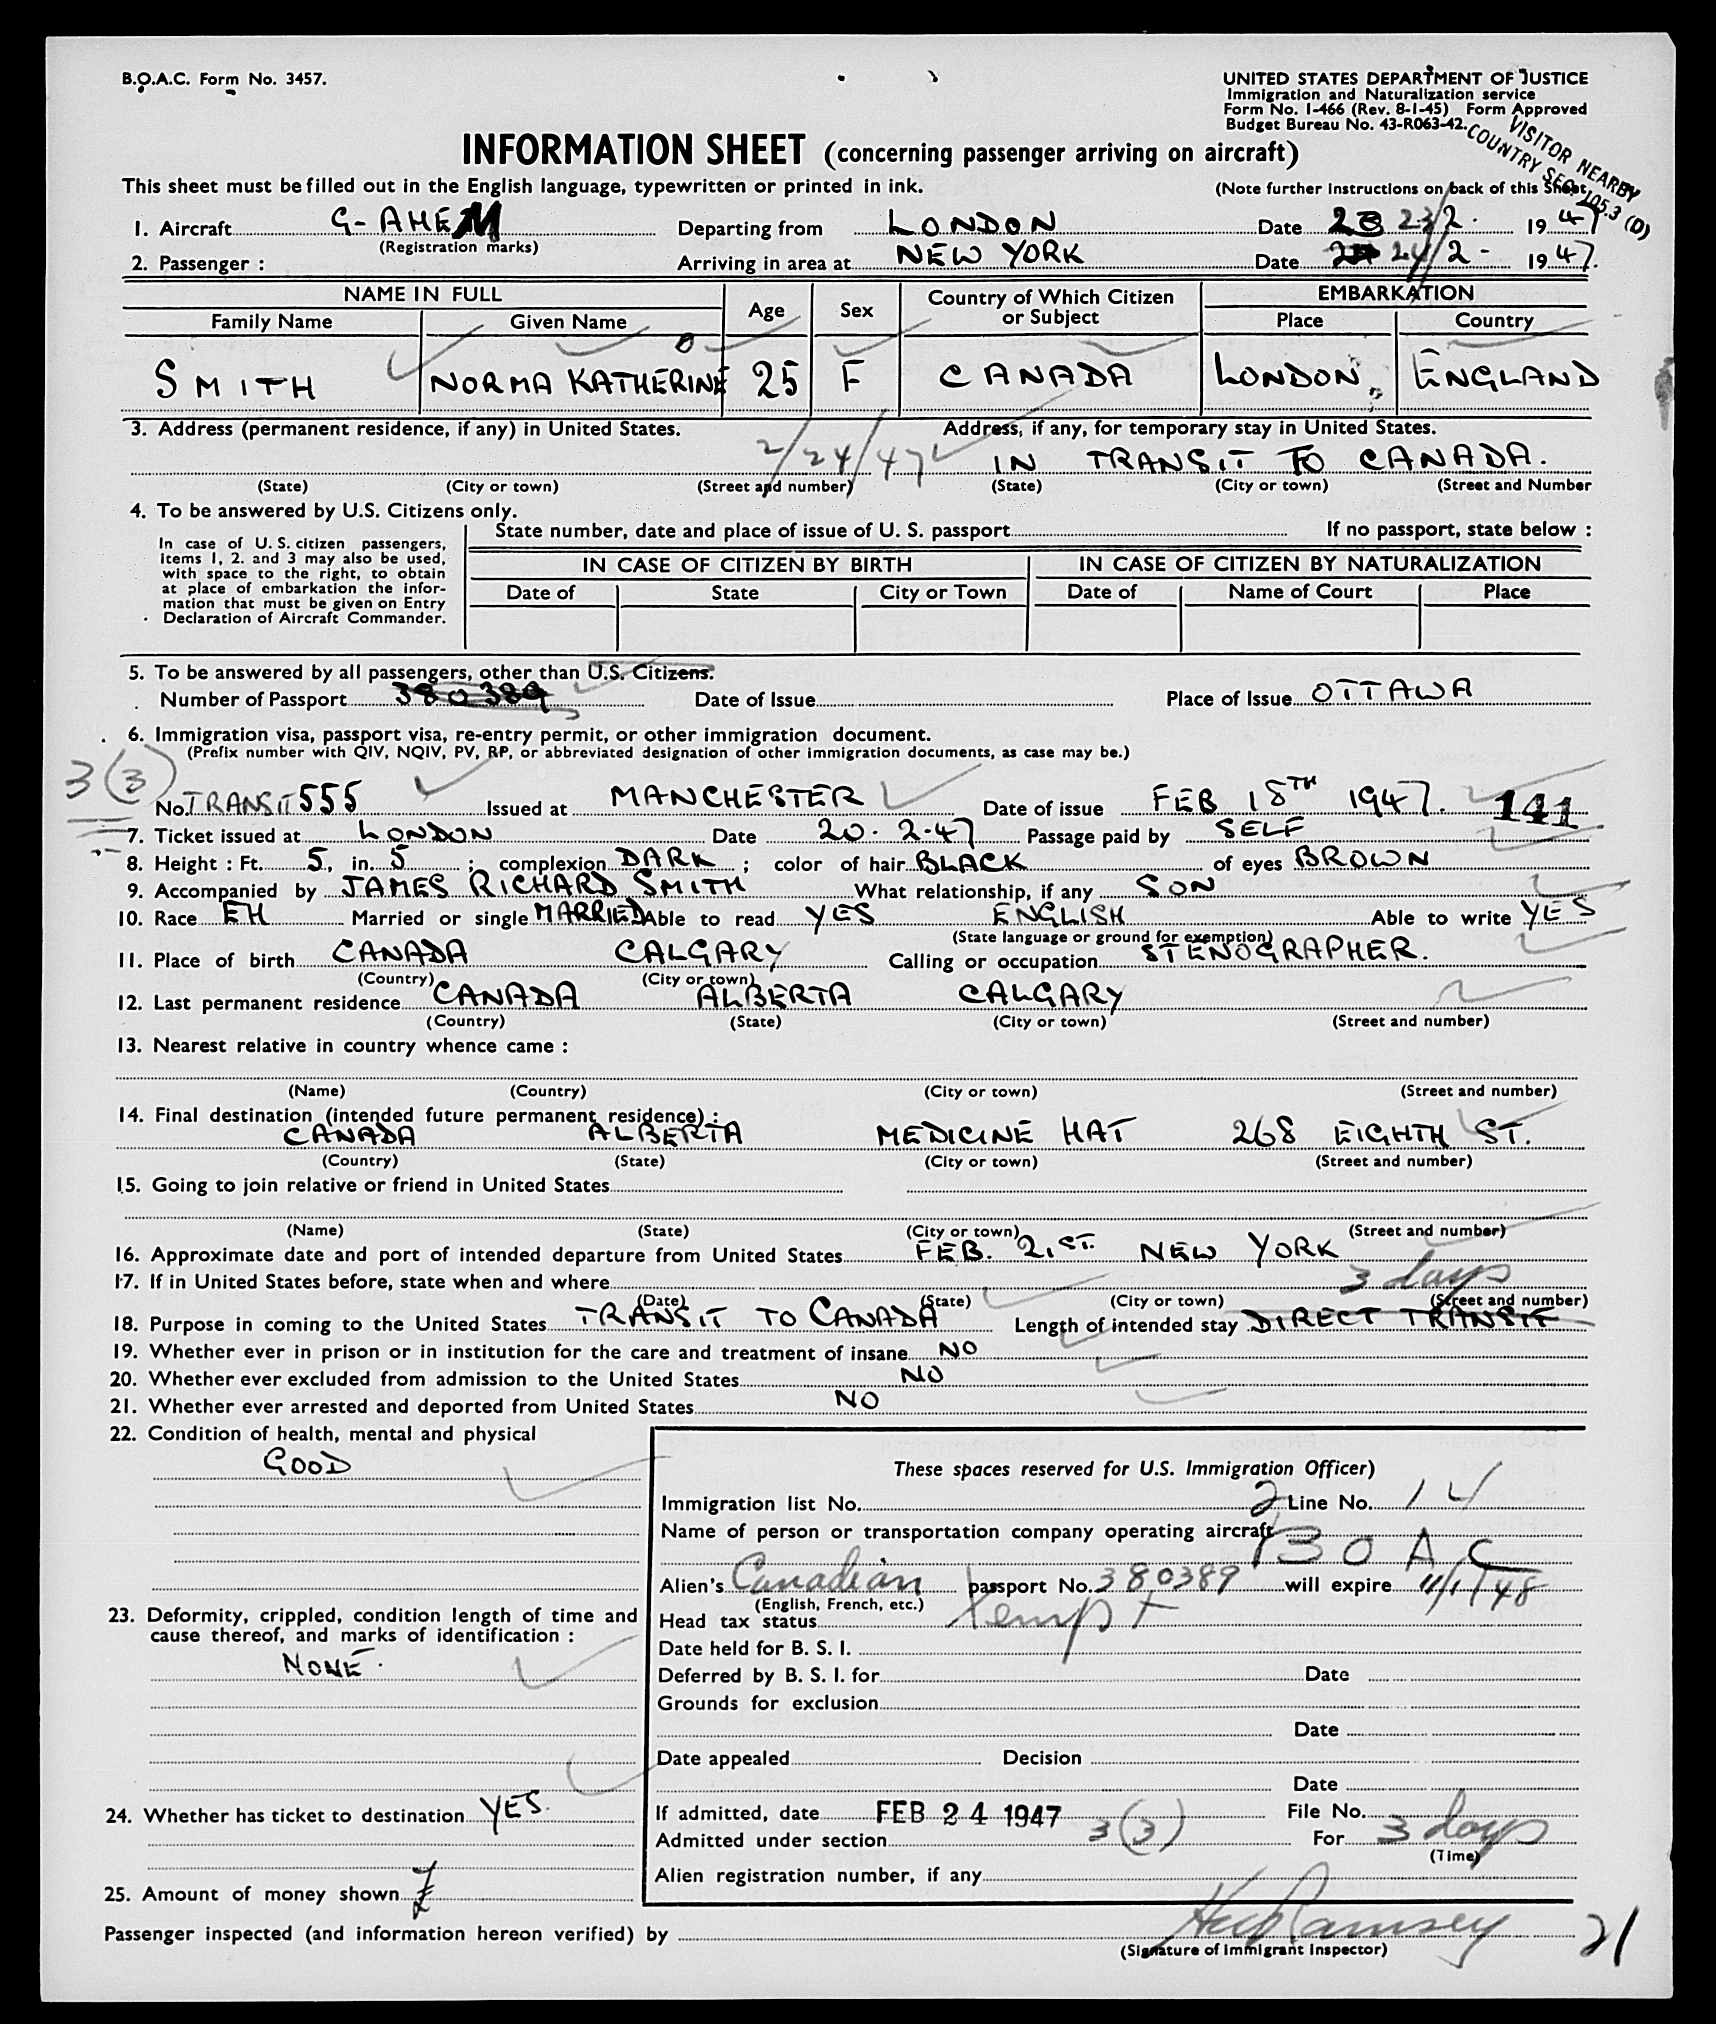 B.O.A.C. Form No. 3457.
UNITED STATES DEPARTMENT OF JUSTICE
Immigration and Naturalization service
Form No. I-466 (Rev. 8-1-45) Form Approved
Budget Bureau No. 43-R063-42.
VISITOR NEARBY
COUNTRY SEC. 105.3 (D)
INFORMATION SHEET (concerning passenger arriving on aircraft)
This sheet must be filled out in the English language, typewritten or printed in ink.
(Note further Instructions on back of this Sheet)
1. Aircraft G-AHEM Departing from LONDON Date 23/2 1947
(Registration marks)
2. Passenger : Arriving in area at NEW YORK Date 24/2 - 1947.
NAME IN FULL Age Sex Country of Which Citizen or Subject EMBARKATION
Family Name Given Name Place Country
SMITH NORMA KATHERINE 25 F CANADA LONDON, ENGLAND
3. Address (permanent residence, if any) in United States. Address, if any, for temporary stay in United States.
2/24/47 IN TRANSIT TO CANADA.
(State) (City or town) (Street and number) (State) (City or town) (Street and Number
4. To be answered by U.S. Citizens only.
State number, date and place of issue of U. S. passport If no passport, state below :
In case of U. S. citizen passengers,
items 1, 2. and 3 may also be used,
with space to the right, to obtain
at place of embarkation the infor-
mation that must be given on Entry
Declaration of Aircraft Commander.
IN CASE OF CITIZEN BY BIRTH IN CASE OF CITIZEN BY NATURALIZATION
Date of State City or Town Date of Name of Court Place
5. To be answered by all passengers, other than U.S. Citizens.
Number of Passport 380389 Date of Issue Place of Issue OTTAWA
6. Immigration visa, passport visa, re-entry permit, or other immigration document.
(Prefix number with QIV, NQIV, PV, RP, or abbreviated designation of other immigration documents, as case may be.)
3 (3)
No. TRANSIT 555 Issued at MANCHESTER Date of issue FEB 18TH 1947. 141
7. Ticket issued at LONDON Date 20. 2. 47 Passage paid by SELF
8. Height : Ft. 5, in. 5 ; complexion DARK ; color of hair BLACK of eyes BROWN
9. Accompanied by JAMES RICHARD SMITH What relationship, if any SON
10. Race EH Married or single MARRIED Able to read YES ENGLISH Able to write YES
(State language or ground for exemption)
11. Place of birth CANADA CALGARY Calling or occupation STENOGRAPHER.
(Country) (City or town)
12. Last permanent residence CANADA ALBERTA CALGARY
(Country) (State) (City or town) (Street and number)
13. Nearest relative in country whence came :
(Name) (Country) (City or town) (Street and number)
14. Final destination (intended future permanent residence) :
CANADA ALBERTA MEDICINE HAT 268 EIGHTH ST.
(Country) (State) (City or town) (Street and number)
15. Going to join relative or friend in United States
(Name) (State) (City or town) (Street and number)
16. Approximate date and port of intended departure from United States FEB. 21ST. NEW YORK
17. If in United States before, state when and where 3 days
(Date) (State) (City or town) (Street and number)
18. Purpose in coming to the United States TRANSIT TO CANADA Length of intended stay DIRECT TRANSIT
19. Whether ever in prison or in institution for the care and treatment of insane NO
20. Whether ever excluded from admission to the United States NO
21. Whether ever arrested and deported from United States NO
22. Condition of health, mental and physical
GOOD
These spaces reserved for U.S. Immigration Officer)
Immigration list No. 2 Line No. 14
Name of person or transportation company operating aircraft
BOAC
Alien's Canadian passport No. 380389 will expire 11/1/48
(English, French, etc.)
Head tax status
Date held for B. S. I.
Deferred by B. S. I. for Date
Grounds for exclusion
Date
Date appealed Decision
Date
If admitted, date FEB 24 1947 File No.
Admitted under section 3(3) For 3 days
(Time)
Alien registration number, if any
23. Deformity, crippled, condition length of time and
cause thereof, and marks of identification :
NONE.
24. Whether has ticket to destination YES.
25. Amount of money shown £
Passenger inspected (and information hereon verified) by Ramsey
(Signature of Immigrant Inspector)
21